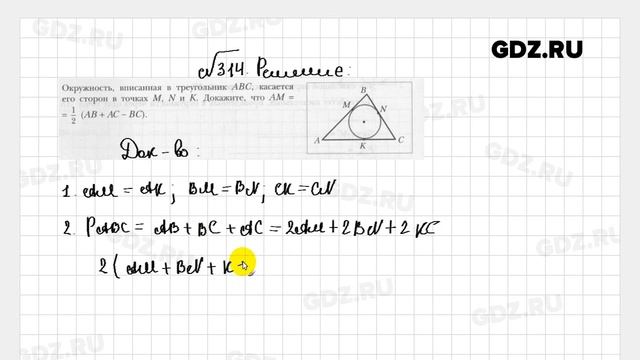 GDZ.RU
№314. Решение:
Окружность, вписанная в треугольник ABC, касается
его сторон в точках M, N и K. Докажите, что AM =
= 1/2 (AB + AC − BC).
B
M
N
A
K
C
Док-во:
1. AM = AK; BM = BN; CK = CN
2. PABC = AB + BC + AC = 2AM + 2BN + 2KC
2(AM + BN + K